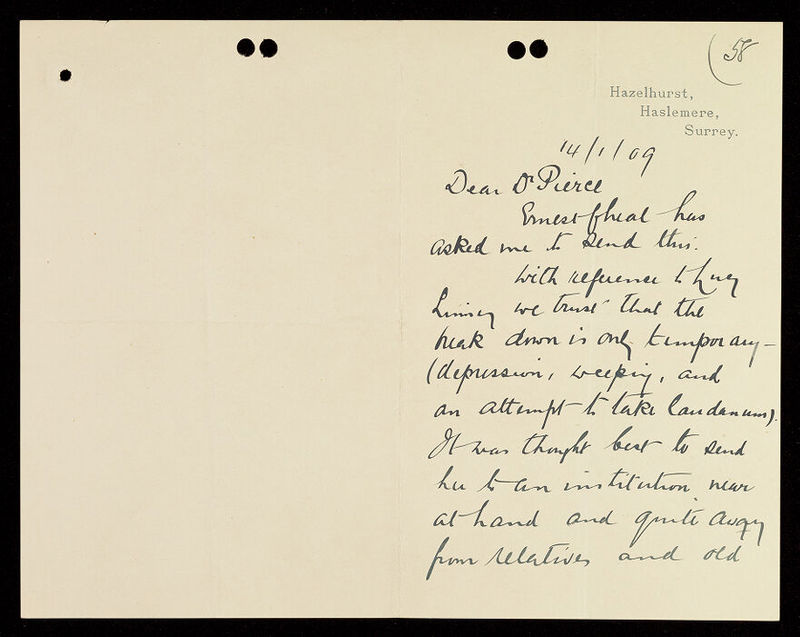 58
Hazelhurst,
Haslemere,
Surrey.
14/1/09
Dear Dr Pierce
Ernest has
asked me to send this.
With reference to Lucy
we trust that the
break down is only temporary —
(depression, weeping, and
an attempt to take laudanum).
It was thought best to send
her to an institution near
at hand and quite away
from relatives and old